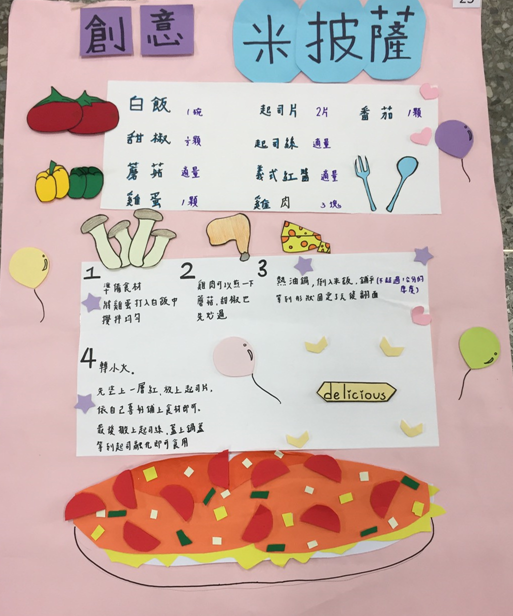 創意
米披薩
白飯 1碗 起司片 2片 番茄 1顆
甜椒 ½顆 起司絲 適量
蘑菇 適量 義式紅醬 適量
雞蛋 1顆 雞肉 3塊
1
準備食材
將雞蛋打入白飯中
攪拌均勻
2
雞肉可以煎一下
蘑菇.甜椒也
先炒過
3
熱油鍋,倒入米飯,鋪平(不超過1公分的厚度)
等到形狀固定了以後翻面
4
轉小火.
先塗上一層紅.放上起司片.
依自己喜好鋪上食材即可.
最後撒上起司絲.蓋上鍋蓋
等到起司融化即可食用
delicious